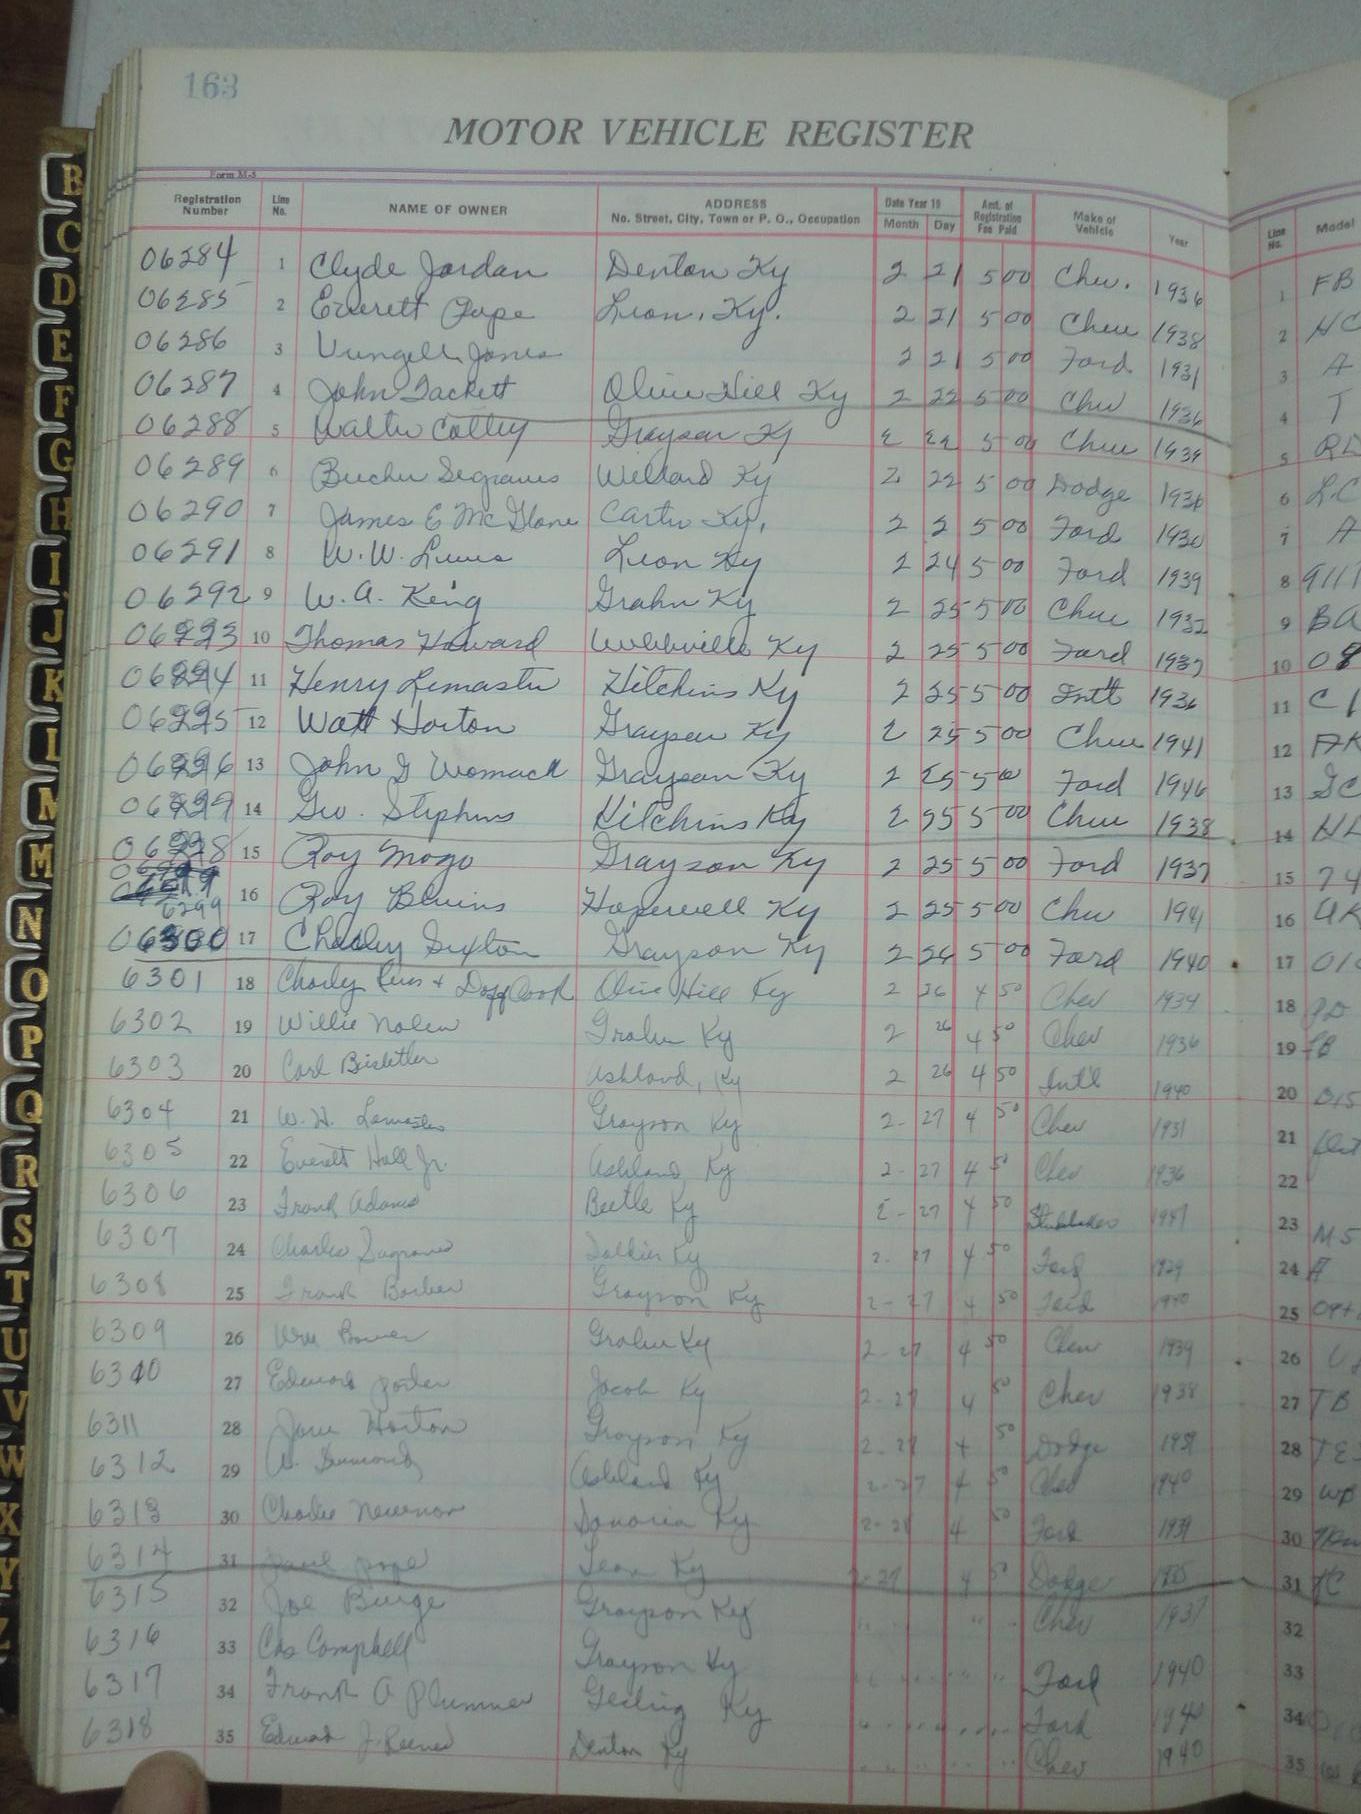 163
MOTOR VEHICLE REGISTER
Form M-5
Registration Number Line No. NAME OF OWNER ADDRESS No. Street, City, Town or P. O., Occupation Date Year 19 Month Day Amt. of Registration Fee Paid Make of Vehicle Year Line No. Model
06284 1 Clyde Jordan Denton Ky 2 21 5 00 Chev. 1936 1 FB
06285 2 Everett Pope Leon, Ky. 2 21 5 00 Chev 1938 2 HC
06286 3 Jones 2 21 5 00 Ford 1931 3 A
06287 4 John Tackett Olive Hill Ky 2 22 5 00 Chev 1936 4 T
06288 5 Walter Ky 2 22 5 00 Chev 1939 5
06289 6 Willard Ky 2 22 5 00 Dodge 1936 6 LC
06290 7 James E McGlone Carter Ky. 2 2 5 00 Ford 1930 7 A
06291 8 W. W. Leon Ky 2 24 5 00 Ford 1939 8
06292 9 W. A. King Grahn Ky 2 25 5 00 Chev 1932 9 BA
06293 10 Thomas Howard Webbville Ky 2 25 5 00 Ford 1937 10 08
06294 11 Henry Lemaster Hitchins Ky 2 25 5 00 Int'l 1936 11
06295 12 Watt Horton Grayson Ky 2 25 5 00 Chev 1941 12 AK
06296 13 John G Womack Grayson Ky 2 25 5 00 Ford 1946 13 GC
06297 14 Geo. Stephens Hitchins Ky 2 25 5 00 Chev 1938 14
06298 15 Roy Mozo Grayson Ky 2 25 5 00 Ford 1937 15 74
6299 16 Roy Blevins Hopewell Ky 2 25 5 00 Chev 1941 16 AK
06300 17 Charley Sexton Grayson Ky 2 26 5 00 Ford 1940 17
6301 18 Charley + Cook Olive Hill Ky 2 26 4 50 Chev 1939 18
6302 19 Willie Nolen Grahn Ky 2 26 4 50 Chev 1936 19 FB
6303 20 Carl Ashland, Ky 2 26 4 50 Int'l 1940 20 D15
6304 21 W. H. Lemaster Grayson Ky 2- 27 4 50 Chev 1931 21
6305 22 Everett Hall Jr. Ashland Ky 2- 27 4 50 Chev 1936 22
6306 23 Frank Adams Beetle Ky 2- 27 4 50 Studebaker 1947 23 M5
6307 24 Charles Ky 2- 27 4 50 Ford 1929 24 A
6308 25 Frank Barber Grayson Ky 2- 27 4 50 Ford 1940 25
6309 26 Grahn Ky 2- 27 4 50 Chev 1939 26
6310 27 Edward Porter Jacob Ky 2- 27 4 50 Chev 1938 27 TB
6311 28 Horton Grayson Ky 2- 27 4 50 Dodge 28 TE
6312 29 Ashland Ky 2- 27 4 50 Chev 1940 29 WB
6313 30 Charlie Ky 2- 28 4 50 Ford 1939 30
6314 31 Paul Pope Leon Ky 4 50 Dodge 31
6315 32 Joe Burge Grayson Ky Chev 1937 32
6316 33 Campbell Grayson Ky Ford 1940 33
6317 34 Frank A Plummer Ky Ford 1940 34
6318 35 Edward J. Denton Ky Chev 1940 35
B
C
D
E
F
G
H
I
J
K
L
M
M
N
O
P
Q
R
S
T
U
V
W
X
Y
Z